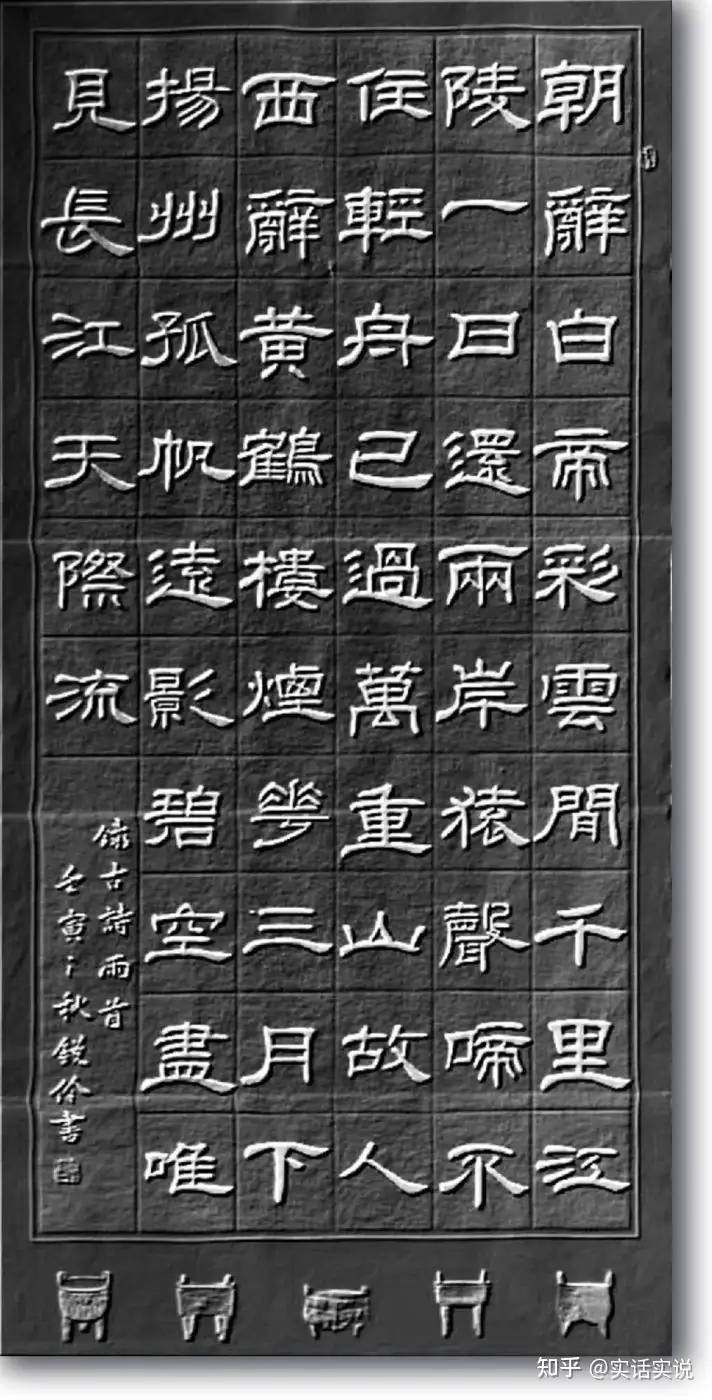 朝辭白帝彩雲閒千里江
陵一日還兩岸猿聲啼不
住輕舟已過萬重山故人
西辭黃鶴樓煙花三月下
揚州孤帆遠影碧空盡唯
見長江天際流
錄古詩兩首
壬寅之秋鋭伶書
知乎 @实话实说